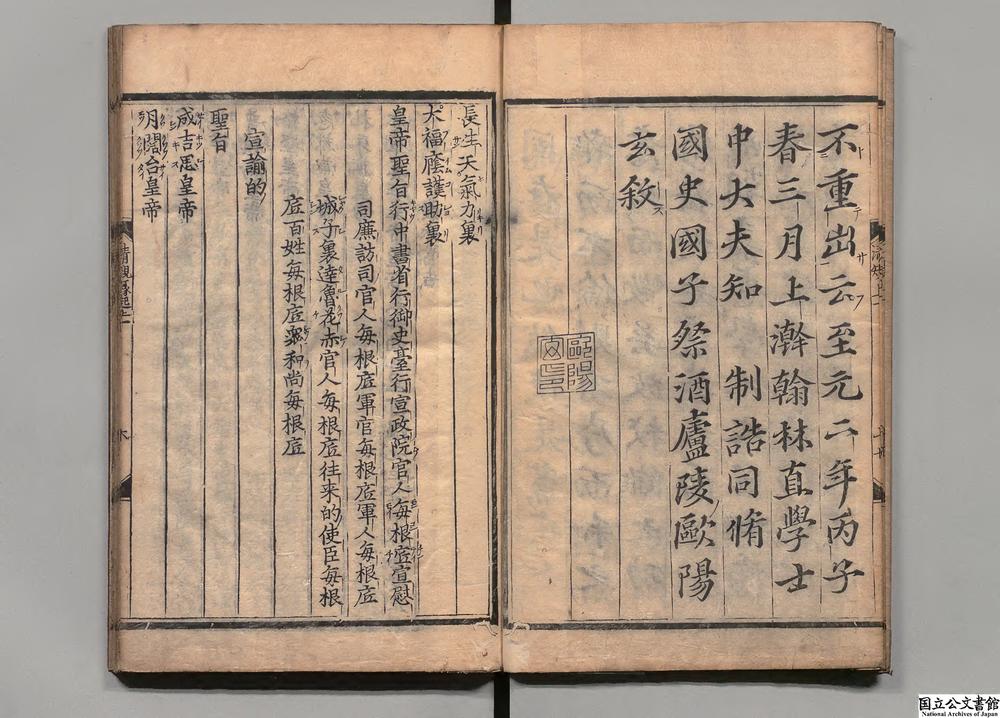 不重出云至元二年丙子
春三月上澣翰林直學士
中大夫知 制誥同脩
國史國子祭酒廬陵歐陽
玄敘
歐陽
長生天氣力裏
大福廕護助裏
皇帝聖旨行中書省行御史臺行宣政院官人每根底宣慰
司廉訪司官人每根底軍官每根底軍人每根底
城子裏達魯花赤官人每根底往来的使臣每根
底百姓每根底衆和尚每根底
宣諭的
聖旨
成吉思皇帝
月闊台皇帝
国立公文書館
National Archives of Japan